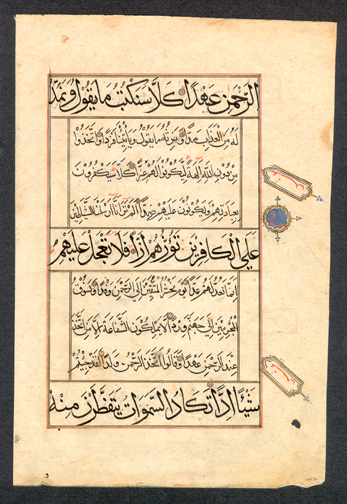 الرَّحْمَنِ عَهْدًا كَلَّا سَنَكْتُبُ مَا يَقُولُ وَنَمُدُّ
لَهُ مِنَ الْعَذَابِ مَدًّا وَنَرِثُهُ مَا يَقُولُ وَيَأْتِينَا فَرْدًا وَاتَّخَذُوا
مِنْ دُونِ اللَّهِ آلِهَةً لِيَكُونُوا لَهُمْ عِزًّا كَلَّا سَيَكْفُرُونَ
بِعِبَادَتِهِمْ وَيَكُونُونَ عَلَيْهِمْ ضِدًّا أَلَمْ تَرَ أَنَّا أَرْسَلْنَا الشَّيَاطِينَ
عَلَى الْكَافِرِينَ تَؤُزُّهُمْ أَزًّا فَلَا تَعْجَلْ عَلَيْهِمْ
إِنَّمَا نَعُدُّ لَهُمْ عَدًّا يَوْمَ نَحْشُرُ الْمُتَّقِينَ إِلَى الرَّحْمَنِ وَفْدًا وَنَسُوقُ
الْمُجْرِمِينَ إِلَى جَهَنَّمَ وِرْدًا لَا يَمْلِكُونَ الشَّفَاعَةَ إِلَّا مَنِ اتَّخَذَ
عِنْدَ الرَّحْمَنِ عَهْدًا وَقَالُوا اتَّخَذَ الرَّحْمَنُ وَلَدًا لَقَدْ جِئْتُمْ
شَيْئًا إِدًّا تَكَادُ السَّمَوَاتُ يَتَفَطَّرْنَ مِنْهُ